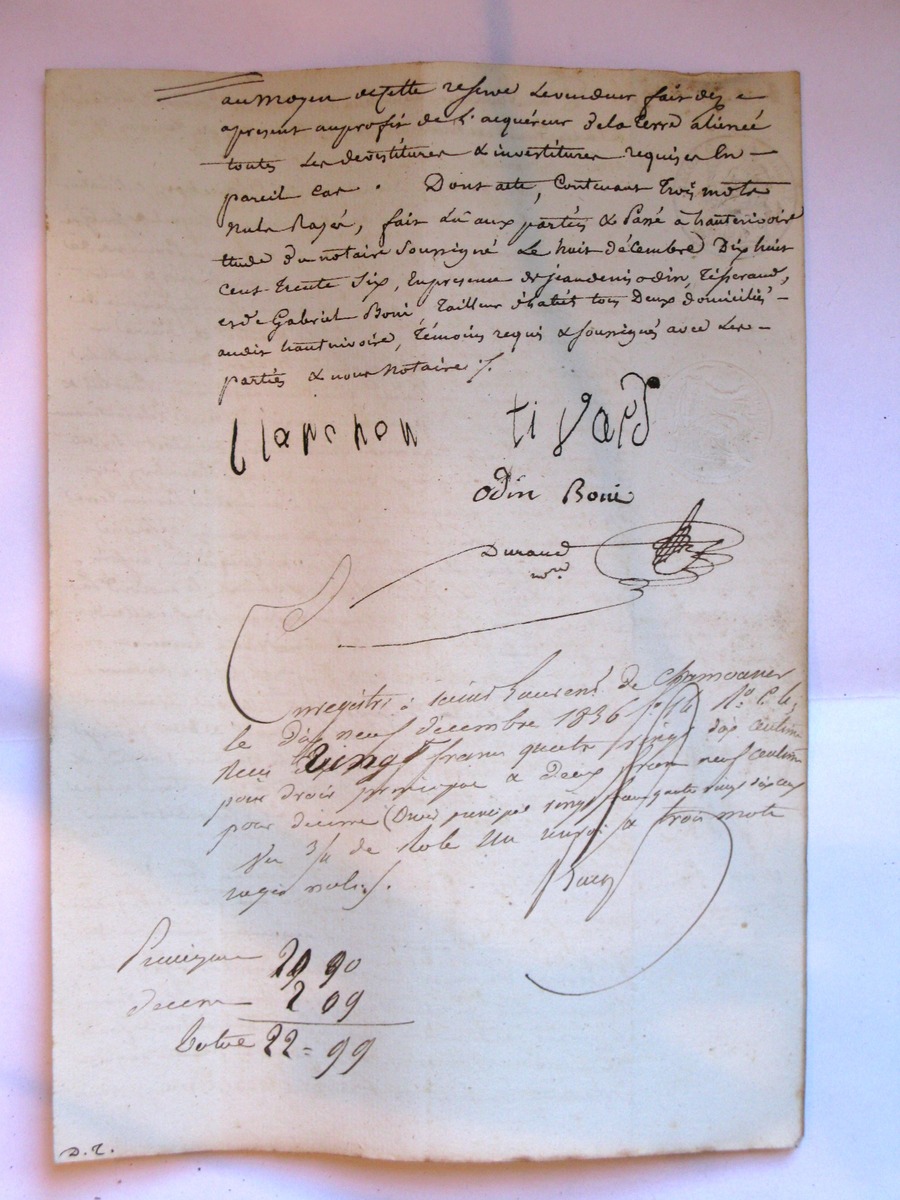 au moyen de cette reserve Le vendeur fait dez a
apresent au profit de L'acquéreur de la terre aliénée
toutes Les devestitures & investitures requises En
pareil cas. Dont acte, Contenant Trois mots
Nuls Rayés, fait Lu aux parties & Passé à hauterivoire
Etude du notaire Soussigné Le huit décembre Dix huit
cent Trente Six, En presence de jean denis odin, Tisserand,
et de Gabriel Boui Tailleur d'habits tous Deux domiciliés
audit hauterivoire, Témoins requis & soussignés avec Les
parties & nous Notaire ./.
blanchon tivard
odin Boui
Durand
nre
Enregistré à saint Laurent de Chamousset
le dix neuf décembre 1836 fo
Reçu vingt francs quatre vingt dix centimes
pour droit principal & deux francs neuf centimes
pour decime principal vingt francs quatre vingt dix
de Role Un & trois mots
rayés nuls ./.
Principal 20 90
decime 2 09
Total 22 = 99
D. T.